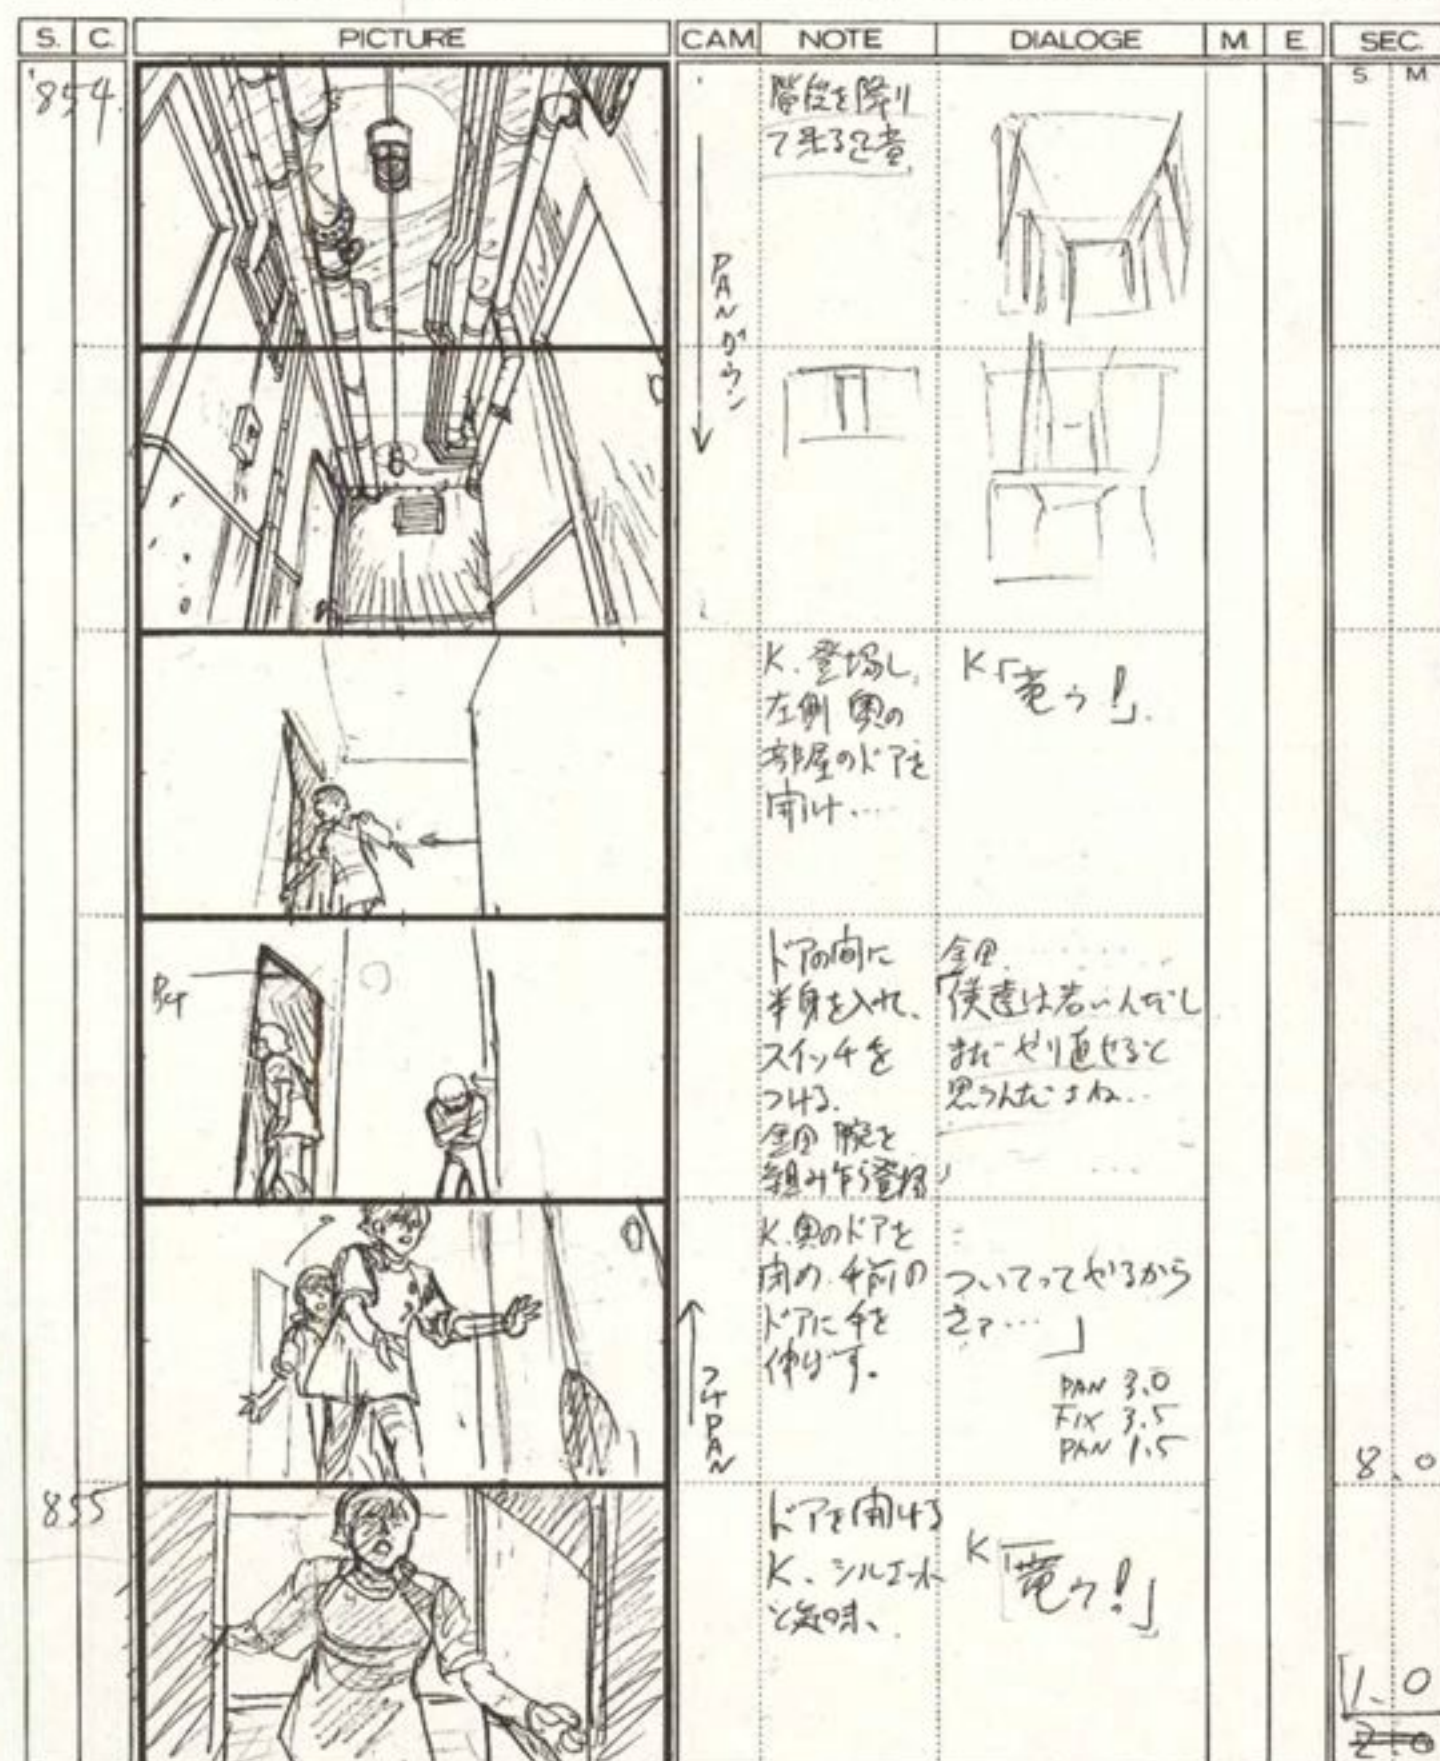 S. C. PICTURE CAM NOTE DIALOGE M. E. SEC.
S M
'854.
階段を降り
て来る足音
PANダウン
K.登場し、
左側 奥の
部屋のドアを
開け‥‥
K「竜っ!」
ドアの間に
半身を入れ、
スイッチを
つける。
金田 腕を
組み乍ら登場
金田
「僕達は若いんだし
まだ やり直せると
思うんだよね‥
K.奥のドアを
閉め.手前の
ドアに手を
伸ばす。
ついてってやるから
さァ‥‥」
PAN 3.0
FIX 3.5
PAN 1.5
PAN
8.0
855
ドアを開ける
K、シルエット
K「竜っ!」
1.0